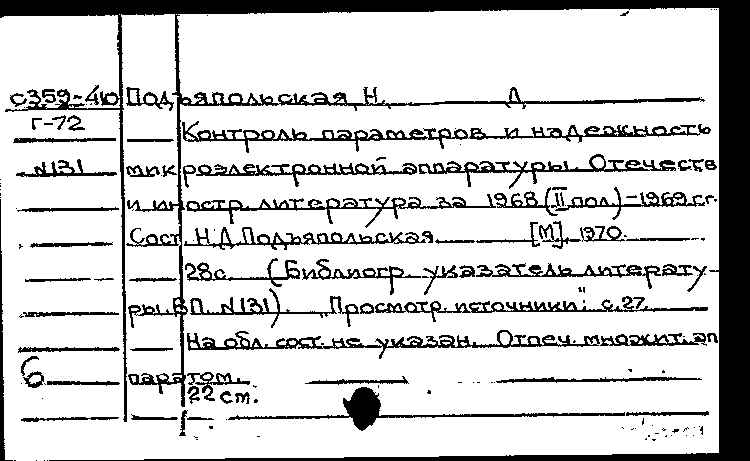 с359-40 Подъяпольская, Н. Д.
Г-72 Контроль параметров и надежность
№131 микроэлектронной аппаратуры. Отечеств
и иностр. литература за 1968 (II пол.)-1969 гг.
Сост. Н.Д. Подъяпольская. [М], 1970.
28с. (Библиогр. указатель литерату-
ры. ВП. №131). „Просмотр. источники": с.27.
На обл. сост. не указан. Отпеч. множит. ап
6 паратом.
22 см.